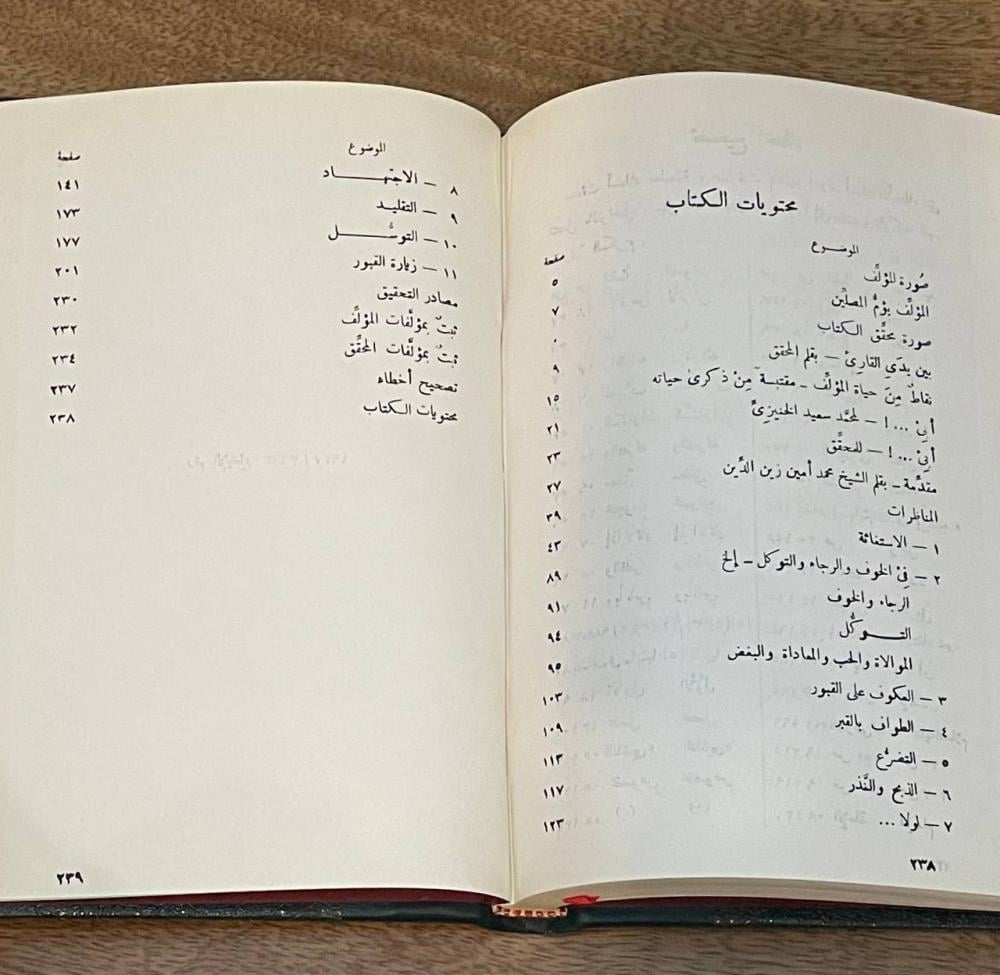 محتويات الكتاب
الموضوع صفحة
صُورة المؤلِّف ٥
المؤلِّف يؤمُّ المصلِّين ٧
صورة محقِّق الكتاب ٠
بين يدَي القارئ — بقلم المحقق ٩
نقاطٌ مِنَ حياة المؤلِّف - مقتبسة مِنْ ذكرىٰ حياته ١٥
أبيْ ... ! — لمحمَّد سعيد الخنيزيِّ ٢١
أبيْ ... ! — للمحقِّق ٢٣
مقدَّمة - بقلم الشيخ محمد أمين زين الدِّين ٢٧
المناظرات ٣٩
١ — الاستغاثة ٤٣
٢ — فِيْ الخوف والرجاء والتوكل - إلخ ٨٩
الرجاء والخوف ٩١
التوكُّل ٩٤
الموالاة والحب والمعاداة والبغض ٩٥
٣ — العكوف على القبور ١٠٣
٤ — الطواف بالقبر ١٠٩
٥ — التضرُّع ١١٣
٦ — الذبح والنَّذر ١١٧
٧ — لولا ... ١٢٣
٢٣٨
الموضوع صفحة
٨ — الاجتهاد ١٤١
٩ — التقليد ١٧٣
١٠ — التوسُّل ١٧٧
١١ — زيارة القبور ٢٠١
مصادر التحقيق ٢٣٠
ثبتٌ بمؤلَّفات المؤلِّف ٢٣٢
ثبتٌ بمؤلَّفات المحقِّق ٢٣٤
تصحيح أخطاء ٢٣٧
محتويات الكتاب ٢٣٨
٢٣٩